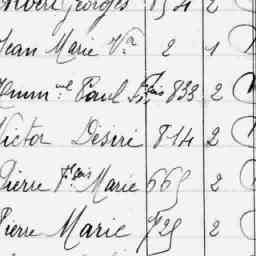 Georges 854 2
Jean Marie Vor 2 1
Emm.uel Paul Fçois 833 2
Victor Désiré 814 2
Pierre Fçois Marie 665 2
Pierre Marie 725 2